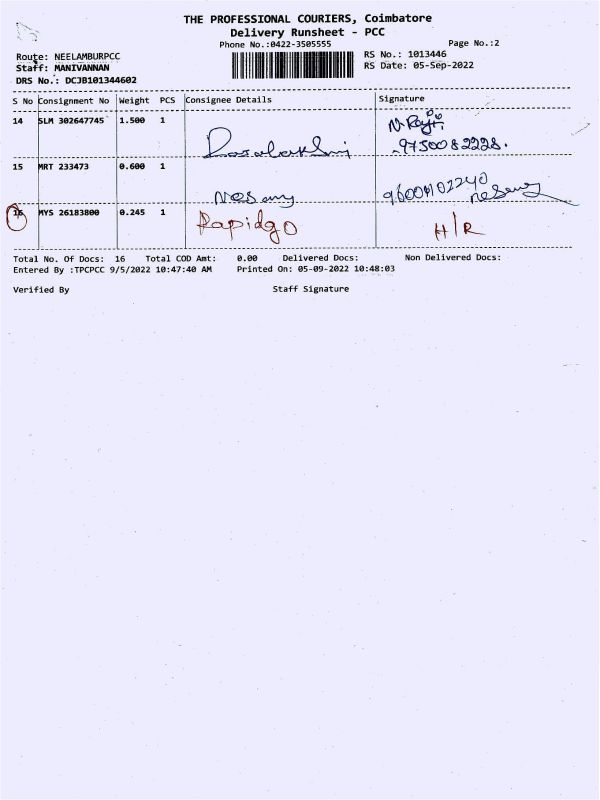 THE PROFESSIONAL COURIERS, Coimbatore
Delivery Runsheet - PCC
Phone No.:0422-3505555 Page No.:2
Route: NEELAMBURPCC
Staff: MANIVANNAN
DRS No.: DCJB101344602
RS No.: 1013446
RS Date: 05-Sep-2022
S No Consignment No Weight PCS Consignee Details Signature
14 SLM 302647745 1.500 1
9750082228.
15 MRT 233473 0.600 1
16 MYS 26183800 0.245 1 Rapidgo H/R
Total No. Of Docs: 16 Total COD Amt: 0.00 Delivered Docs: Non Delivered Docs:
Entered By :TPCPCC 9/5/2022 10:47:40 AM Printed On: 05-09-2022 10:48:03
Verified By Staff Signature